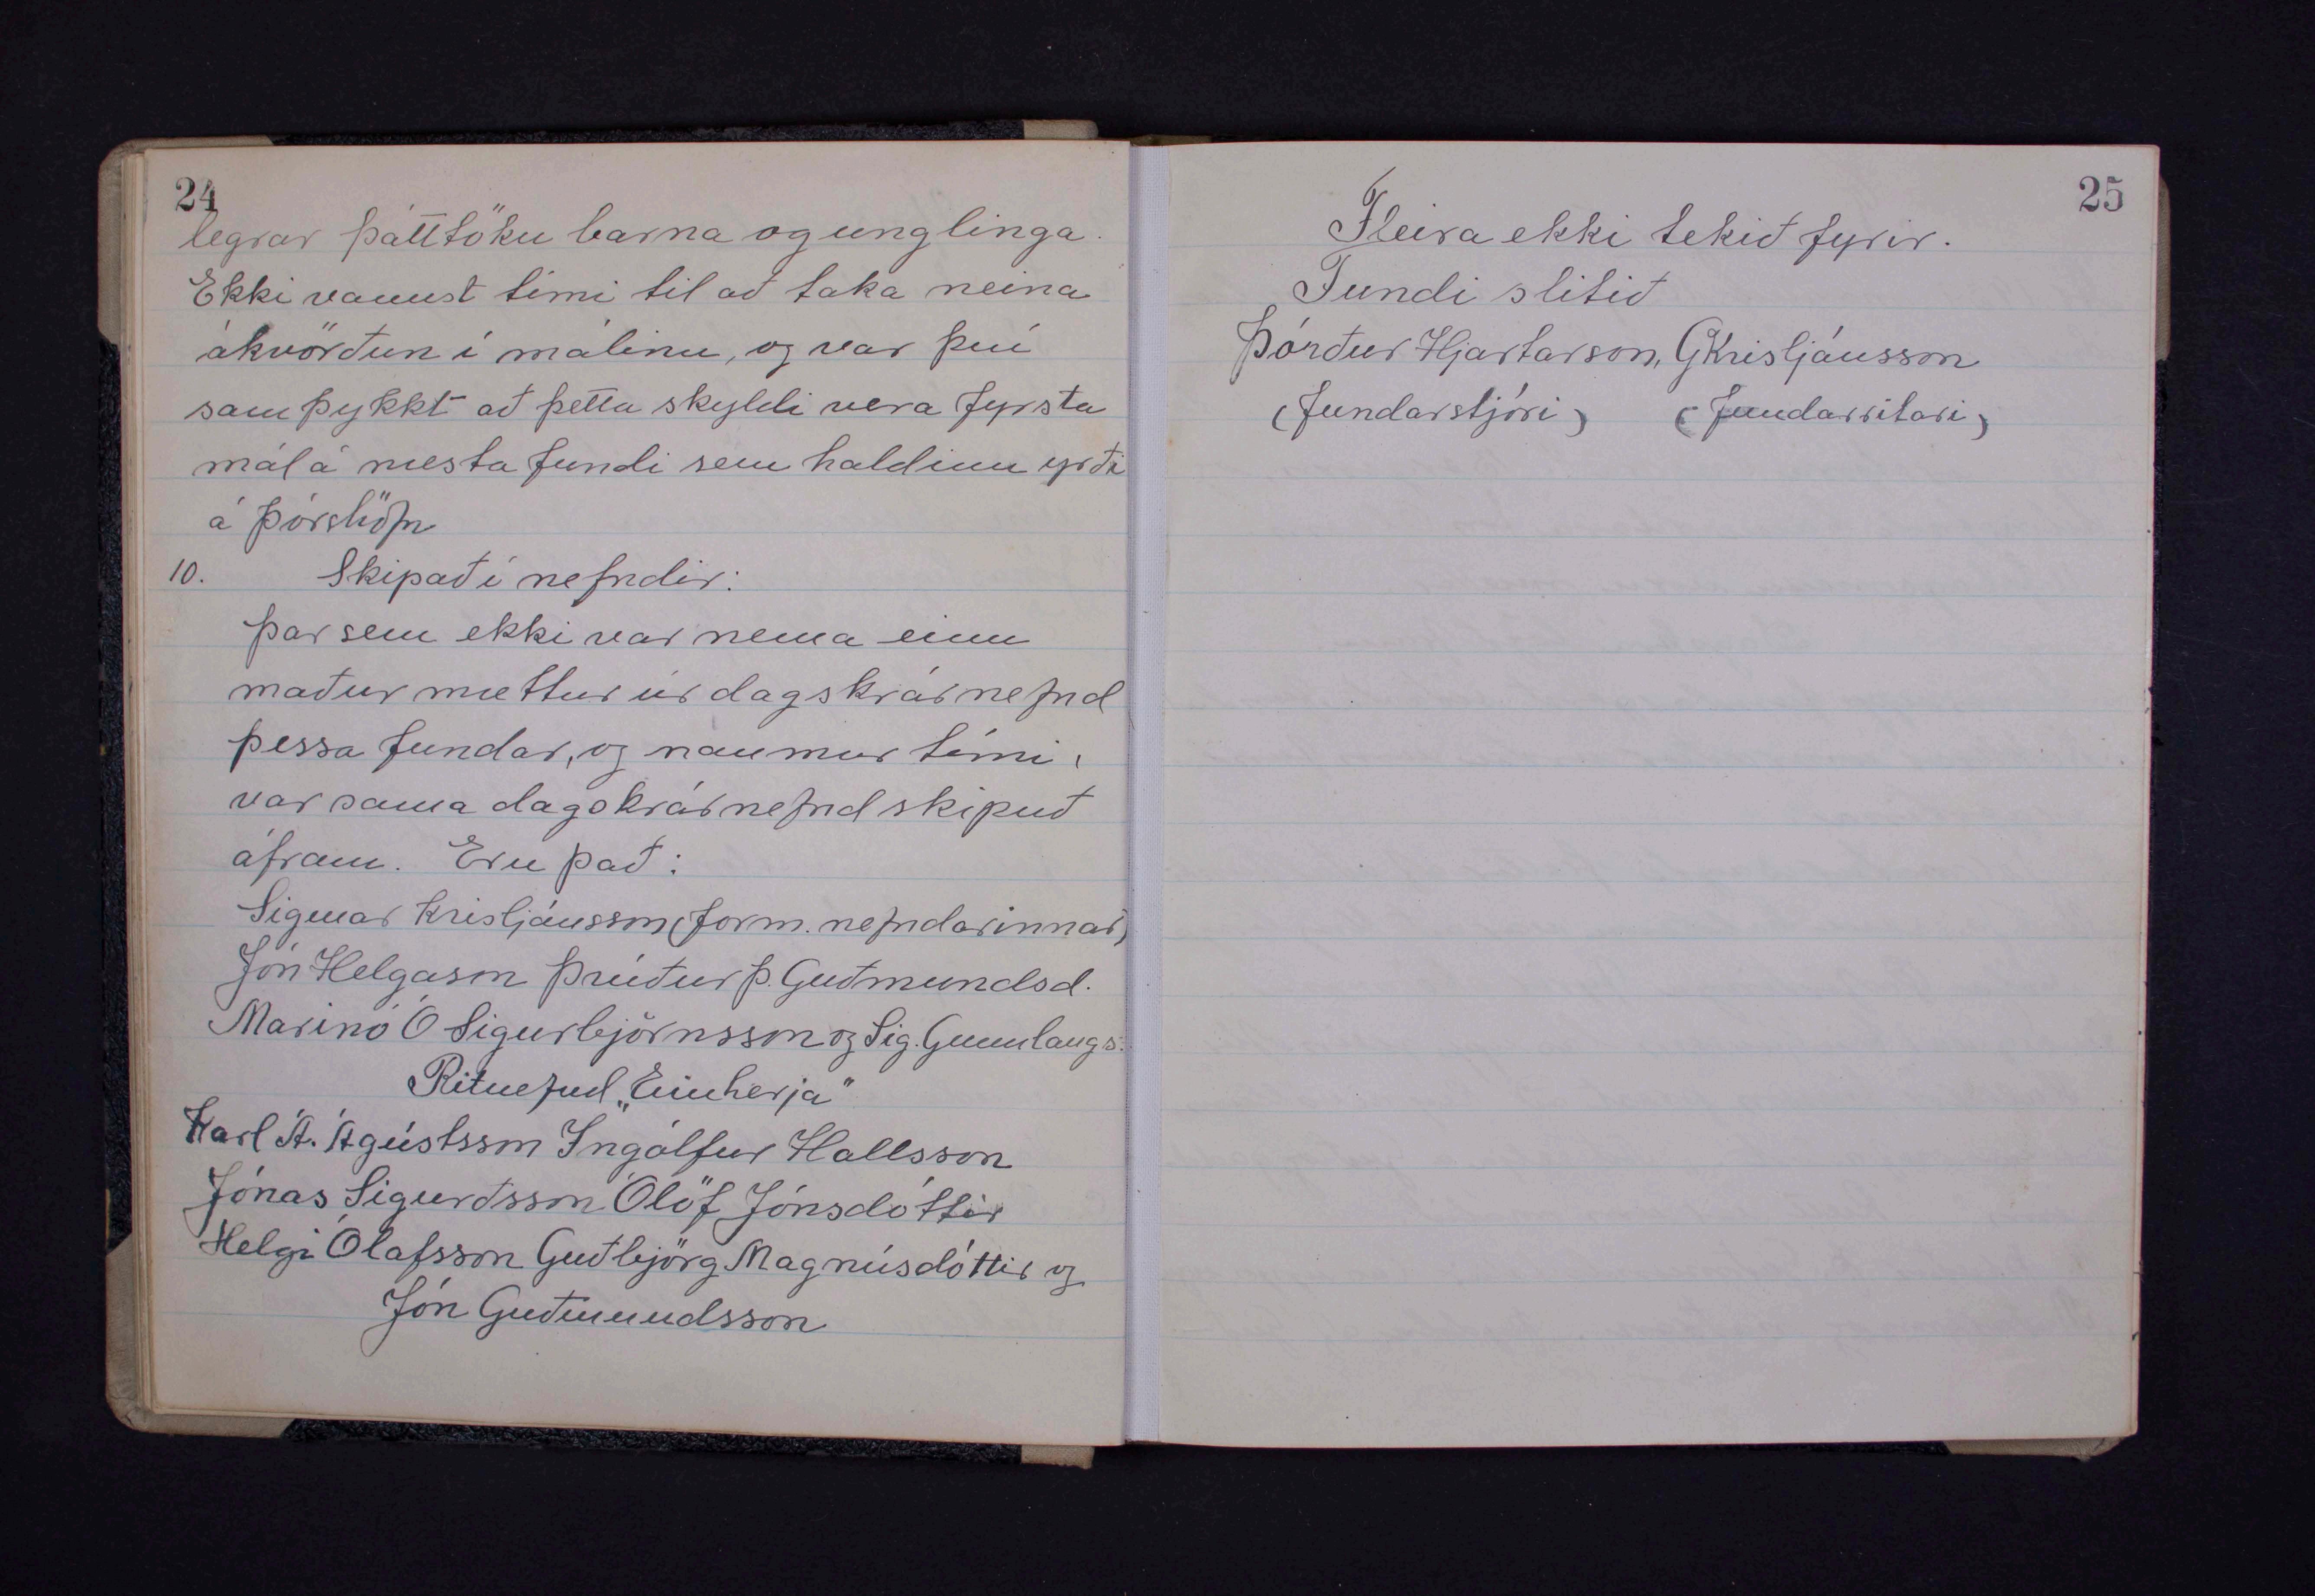 24
legrar þátttöku barna og unglinga.
Ekki vannst tími til að taka neina
ákvörðun í málinu, og var því
samþykkt að þetta skyldi vera fyrsta
mál á næsta fundi sem haldinn yrði
á Þórshöfn
10. Skipað í nefndir:
Þar sem ekki var nema einn
maður mættur úr dagskrárnefnd
þessa fundar, og naumur tími,
var sama dagskrárnefnd skipuð
áfram. Eru það:
Sigmar Kristjánsson (form. nefndarinnar)
Jón Helgason Þrúður Þ. Guðmundsd.
Marinó Ó Sigurbjörnsson og Sig. Gunnlaugs.
Ritnefnd „Einherja"
Karl Á. Ágústsson Ingólfur Hallsson
Jónas Sigurðsson Ólöf Jónsdóttir
Helgi Ólafsson Guðbjörg Magnúsdóttir og
Jón Guðmundsson
25
Fleira ekki tekið fyrir.
Fundi slitið
Þórður Hjartarson, GKristjánsson
(fundarstjóri) (fundarritari)